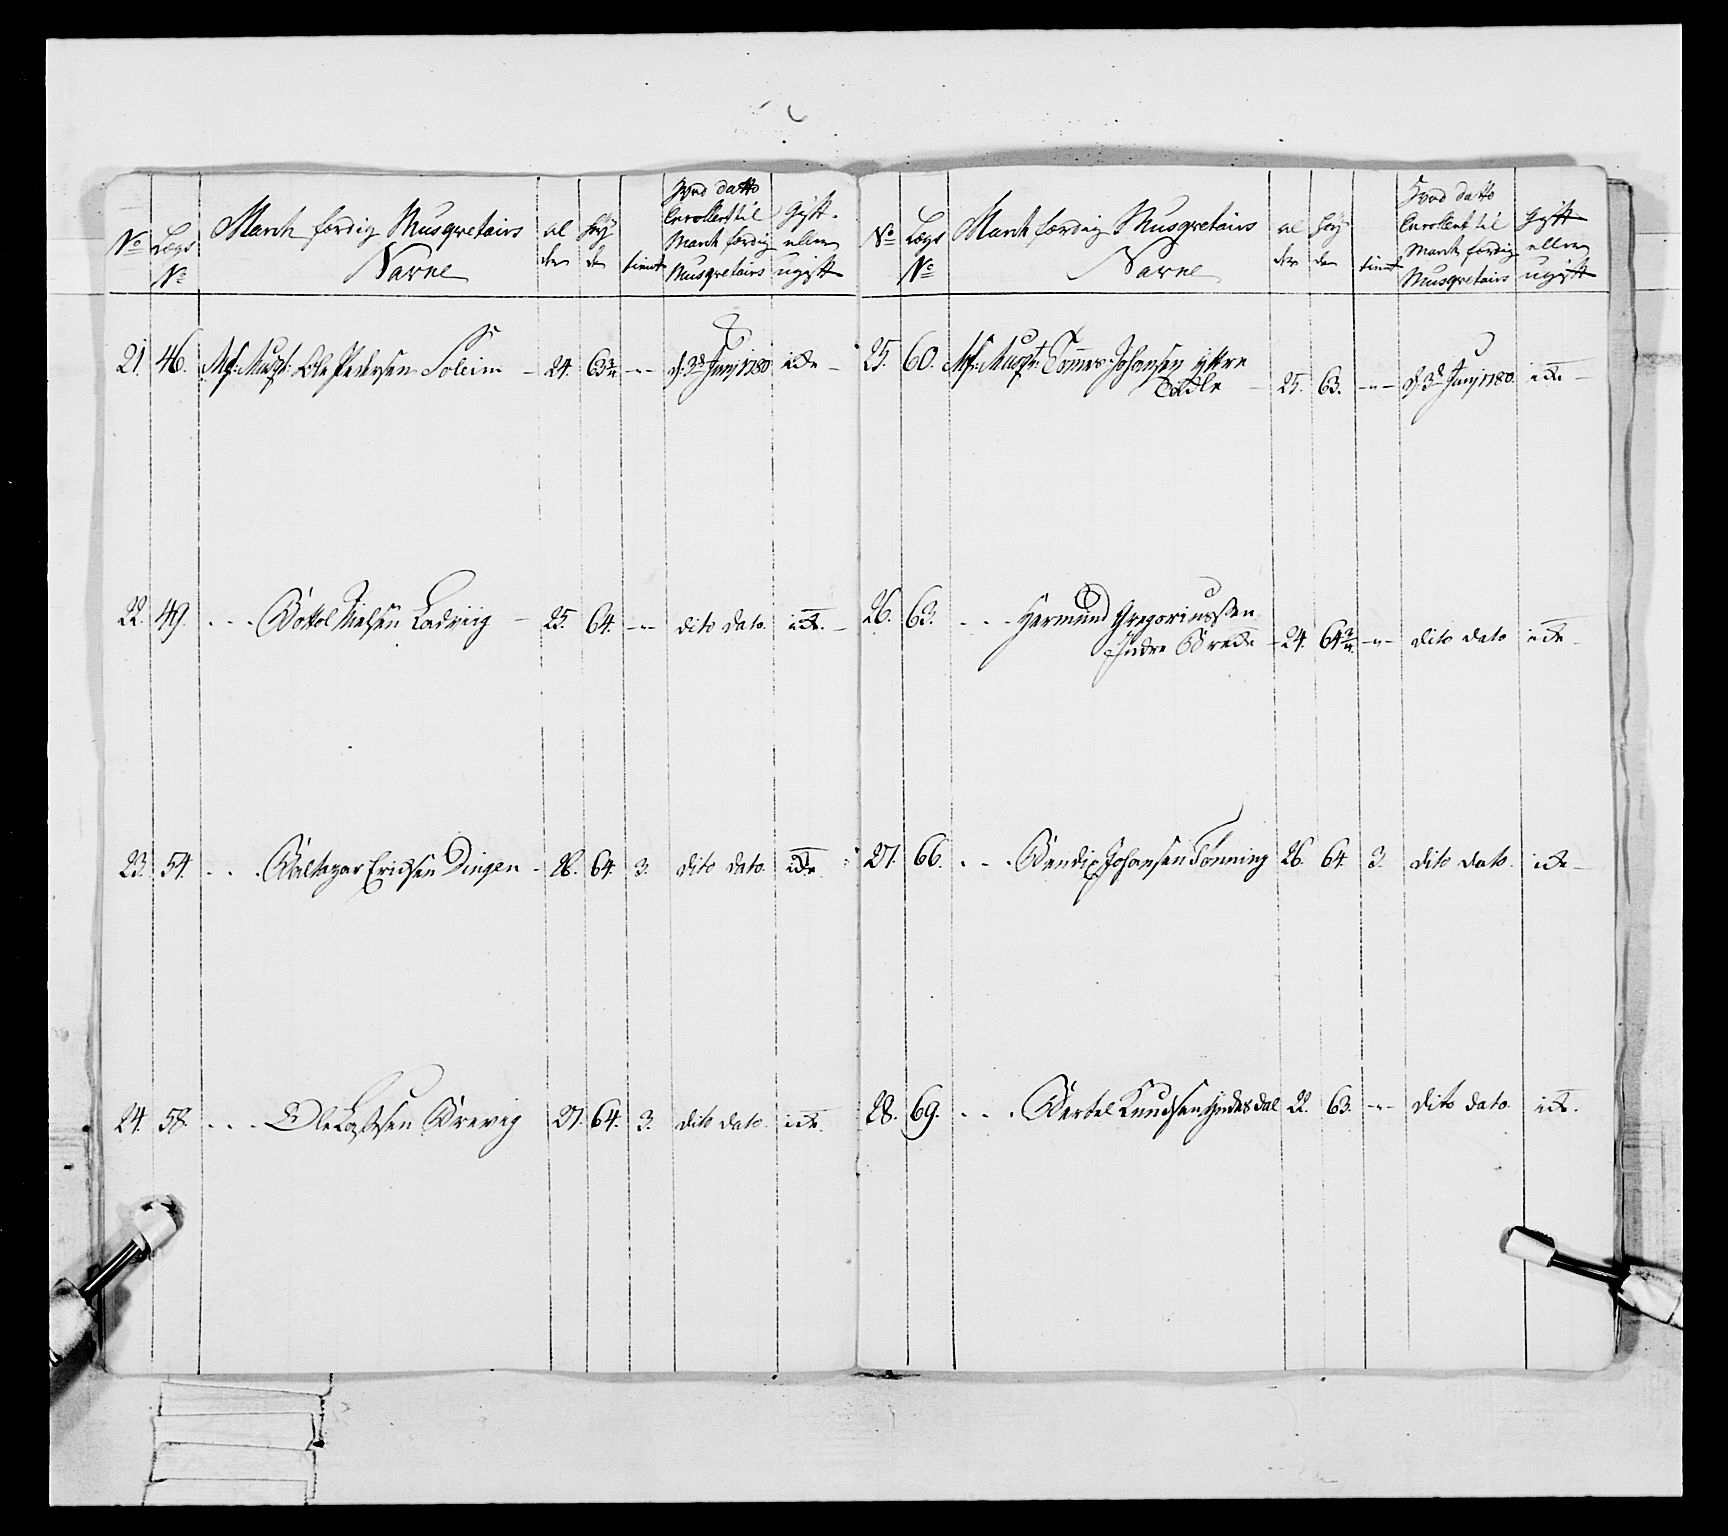 No
Lægs No
Marchfærdig Musqvetairs Navne
al der
Høy de
timt
Hvad datto Enrollert til Marchfærdig Musqvetairs
Gift eller ugift
21. 46. Mf: Musqt: Ole Pedersen Soleim - 24. 63 3/4 - " - d: 3d Junj 1780 ide -
22. 49. - - - Bottol Nielsen Ladviig - 25. 64. - " - dito dato. ide. -
23. 54. - - - Baltazar Erichsen Dingen - 28. 64. 3. dito dato. ide.
24. 58. - - - Ole Lassesen Brevig 27. 64. 3. dito dato. ide.
No
Lægs No
Marchfærdig Musqvetairs Navne
al der
Høy de
timt
Hvad datto Enrollert til Marchfærdig Musqvetairs
Gift eller ugift
25. 60. Mf: Musqt: Tomas Johansen yttre
- 25. 63. - " - d: 3d Junj 1780. ide -
26. 63. - - - Harmund Gregoriussen
Indre Brede - 24. 64 3/4. - " - dito dato ide -
27. 66. - - - Bendix Johansen Tønning 26. 64 3. dito dato. ide -
28. 69. - - - Bertel Knudsen Hjedesdal 22. 63. - " - dito dato. ide.